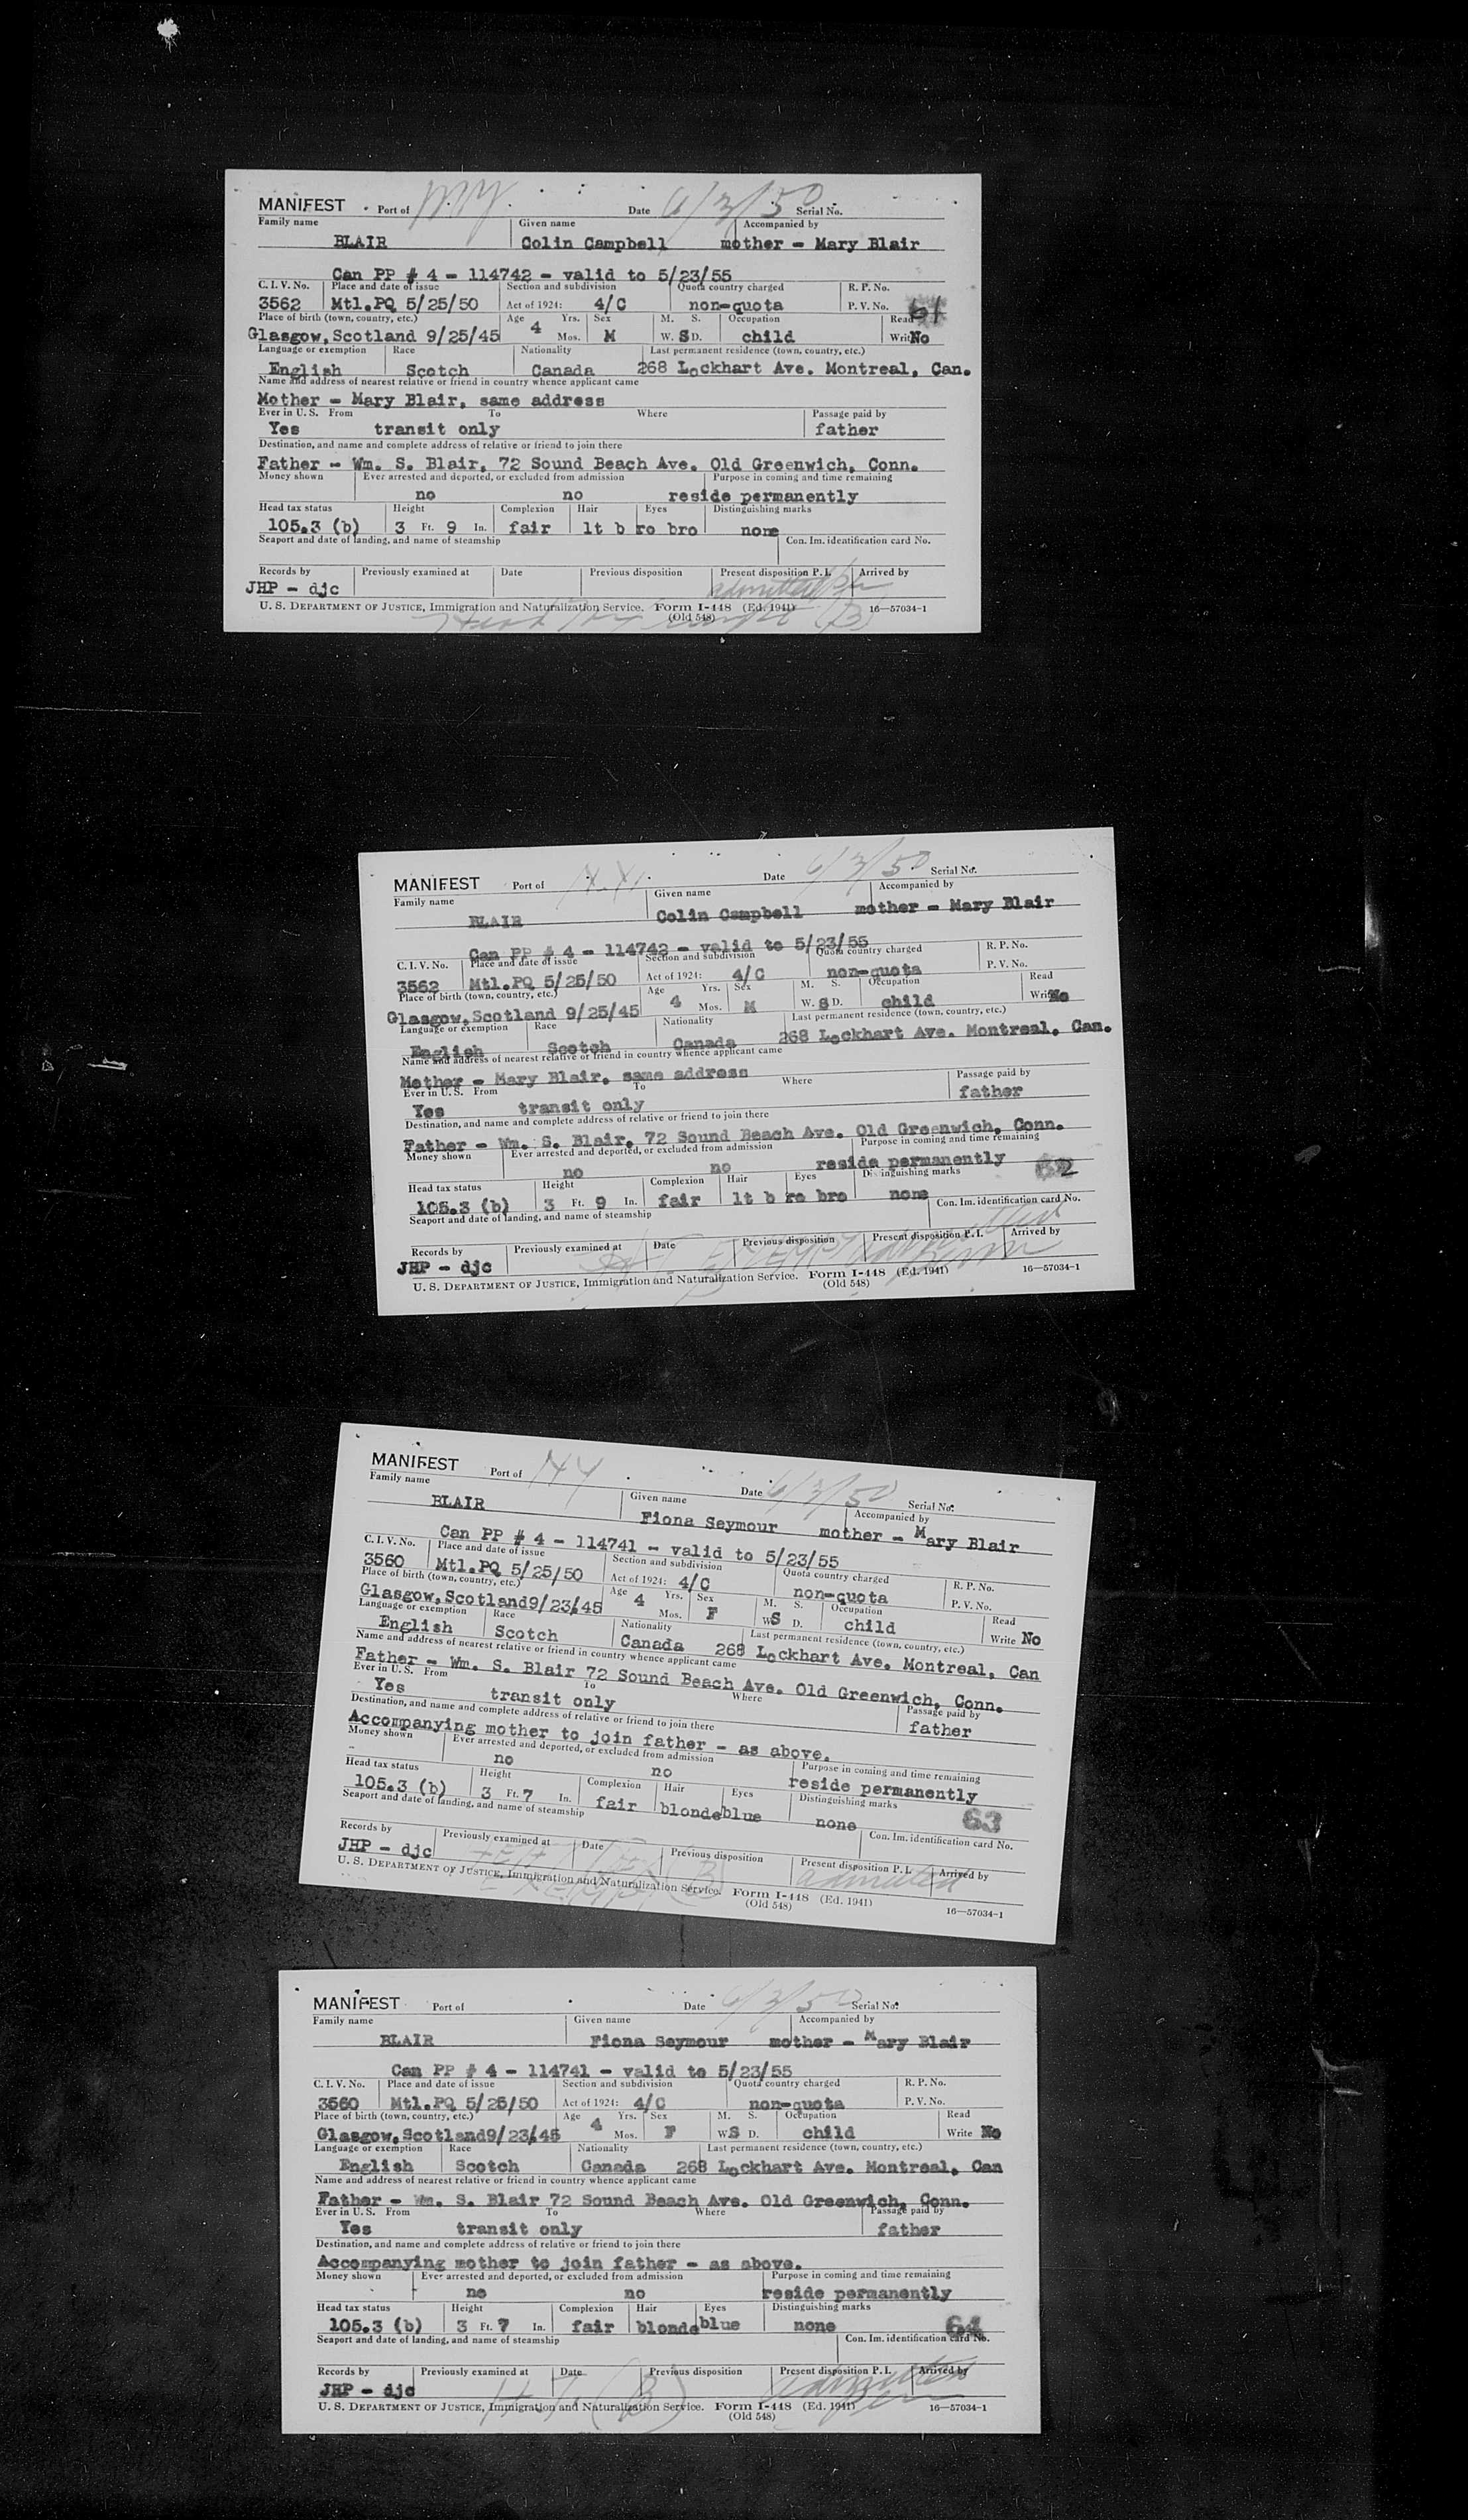 MANIFEST Port of NY Date 6/3/50 Serial No.
Family name Given name Accompanied by
BLAIR Colin Campbell mother - Mary Blair
Can PP # 4 - 114742 - valid to 5/23/55
C. I. V. No. Place and date of issue Section and subdivision Quota country charged R. P. No.
3562 Mtl.PQ 5/25/50 Act of 1924: 4/C non-quota P. V. No. 61
Place of birth (town, country, etc.) Age Yrs. Sex M. S. Occupation Read
Glasgow,Scotland 9/25/45 4 Mos. M W. S D. child Write No
Language or exemption Race Nationality Last permanent residence (town, country, etc.)
English Scotch Canada 268 Lockhart Ave. Montreal, Can.
Name and address of nearest relative or friend in country whence applicant came
Mother - Mary Blair, same address
Ever in U. S. From To Where Passage paid by
Yes transit only father
Destination, and name and complete address of relative or friend to join there
Father - Wm. S. Blair, 72 Sound Beach Ave. Old Greenwich, Conn.
Money shown Ever arrested and deported, or excluded from admission Purpose in coming and time remaining
no no reside permanently
Head tax status Height Complexion Hair Eyes Distinguishing marks
105.3 (b) 3 Ft. 9 In. fair lt b ro bro none
Seaport and date of landing, and name of steamship Con. Im. identification card No.
Records by Previously examined at Date Previous disposition Present disposition P. I. Arrived by
JHP - djc admitted
U. S. DEPARTMENT OF JUSTICE, Immigration and Naturalization Service. Form I-448 (Ed. 1941) 16—57034-1
(Old 548)
Head Tax (B)
MANIFEST Port of Date 6/3/50 Serial No.
Family name Given name Accompanied by
BLAIR Colin Campbell mother - Mary Blair
Can PP # 4 - 114742 - valid to 5/23/55
C. I. V. No. Place and date of issue Section and subdivision Quota country charged R. P. No.
3562 Mtl.PQ 5/25/50 Act of 1924: 4/C non-quota P. V. No.
Place of birth (town, country, etc.) Age Yrs. Sex M. S. Occupation Read
Glasgow,Scotland 9/25/45 4 Mos. M W. S D. child Write No
Language or exemption Race Nationality Last permanent residence (town, country, etc.)
English Scotch Canada 268 Lockhart Ave. Montreal, Can.
Name and address of nearest relative or friend in country whence applicant came
Mother - Mary Blair, same address
Ever in U. S. From To Where Passage paid by
Yes transit only father
Destination, and name and complete address of relative or friend to join there
Father - Wm. S. Blair, 72 Sound Beach Ave. Old Greenwich, Conn.
Money shown Ever arrested and deported, or excluded from admission Purpose in coming and time remaining
no no reside permanently 62
Head tax status Height Complexion Hair Eyes Distinguishing marks
105.3 (b) 3 Ft. 9 In. fair lt b ro bro none
Seaport and date of landing, and name of steamship Con. Im. identification card No.
Records by Previously examined at Date Previous disposition Present disposition P. I. Arrived by
JHP - djc admitted
U. S. DEPARTMENT OF JUSTICE, Immigration and Naturalization Service. Form I-448 (Ed. 1941) 16—57034-1
(Old 548)
MANIFEST Port of NY Date 6/3/50 Serial No.
Family name Given name Accompanied by
BLAIR Fiona Seymour mother - Mary Blair
Can PP # 4 - 114741 - valid to 5/23/55
C. I. V. No. Place and date of issue Section and subdivision Quota country charged R. P. No.
3560 Mtl.PQ 5/25/50 Act of 1924: 4/C non-quota P. V. No.
Place of birth (town, country, etc.) Age Yrs. Sex M. S. Occupation Read
Glasgow,Scotland9/23/45 4 Mos. F WS D. child Write No
Language or exemption Race Nationality Last permanent residence (town, country, etc.)
English Scotch Canada 268 Lockhart Ave. Montreal, Can
Name and address of nearest relative or friend in country whence applicant came
Father - Wm. S. Blair 72 Sound Beach Ave. Old Greenwich, Conn.
Ever in U. S. From To Where Passage paid by
Yes transit only father
Destination, and name and complete address of relative or friend to join there
Accompanying mother to join father - as above.
Money shown Ever arrested and deported, or excluded from admission Purpose in coming and time remaining
no no reside permanently
Head tax status Height Complexion Hair Eyes Distinguishing marks
105.3 (b) 3 Ft. 7 In. fair blonde blue none 63
Seaport and date of landing, and name of steamship Con. Im. identification card No.
Records by Previously examined at Date Previous disposition Present disposition P. I. Arrived by
JHP - djc admitted
U. S. DEPARTMENT OF JUSTICE, Immigration and Naturalization Service. Form I-448 (Ed. 1941) 16—57034-1
(Old 548)
MANIFEST Port of Date 6/3/50 Serial No.
Family name Given name Accompanied by
BLAIR Fiona Seymour mother - Mary Blair
Can PP # 4 - 114741 - valid to 5/23/55
C. I. V. No. Place and date of issue Section and subdivision Quota country charged R. P. No.
3560 Mtl.PQ 5/25/50 Act of 1924: 4/C non-quota P. V. No.
Place of birth (town, country, etc.) Age Yrs. Sex M. S. Occupation Read
Glasgow,Scotland9/23/45 4 Mos. F WS D. child Write No
Language or exemption Race Nationality Last permanent residence (town, country, etc.)
English Scotch Canada 268 Lockhart Ave. Montreal, Can
Name and address of nearest relative or friend in country whence applicant came
Father - Wm. S. Blair 72 Sound Beach Ave. Old Greenwich, Conn.
Ever in U. S. From To Where Passage paid by
Yes transit only father
Destination, and name and complete address of relative or friend to join there
Accompanying mother to join father - as above.
Money shown Ever arrested and deported, or excluded from admission Purpose in coming and time remaining
no no reside permanently
Head tax status Height Complexion Hair Eyes Distinguishing marks
105.3 (b) 3 Ft. 7 In. fair blonde blue none 64
Seaport and date of landing, and name of steamship Con. Im. identification card No.
Records by Previously examined at Date Previous disposition Present disposition P. I. Arrived by
JHP - djc HT (B) admitted
U. S. DEPARTMENT OF JUSTICE, Immigration and Naturalization Service. Form I-448 (Ed. 1941) 16—57034-1
(Old 548)